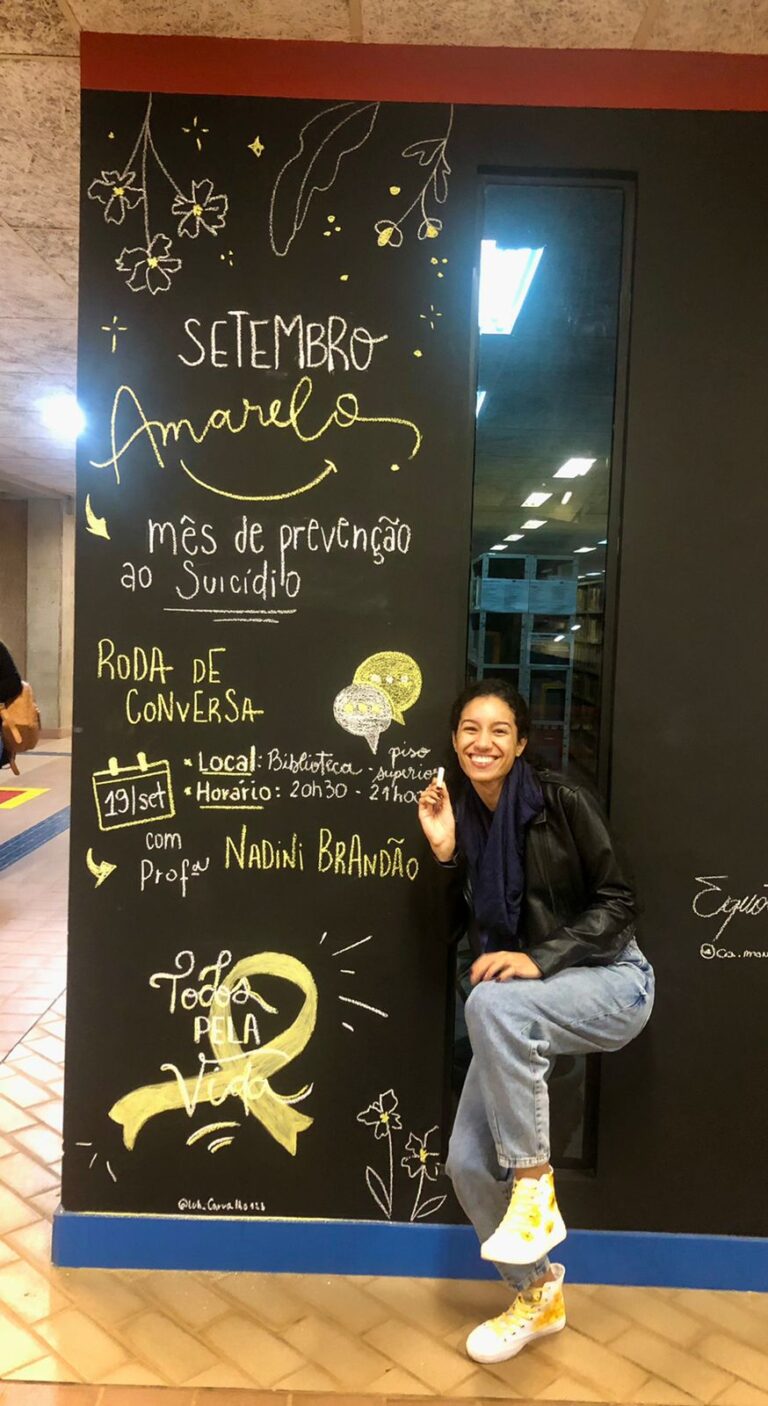 SETEMBRO
Amarelo
mês de prevenção
ao Suicídio
RODA DE
CONVERSA
19/set
* Local: Biblioteca - piso
superio
* Horário: 20h30 - 21h
com
Profª NADINI BRANDÃO
Todos
PELA
Vida